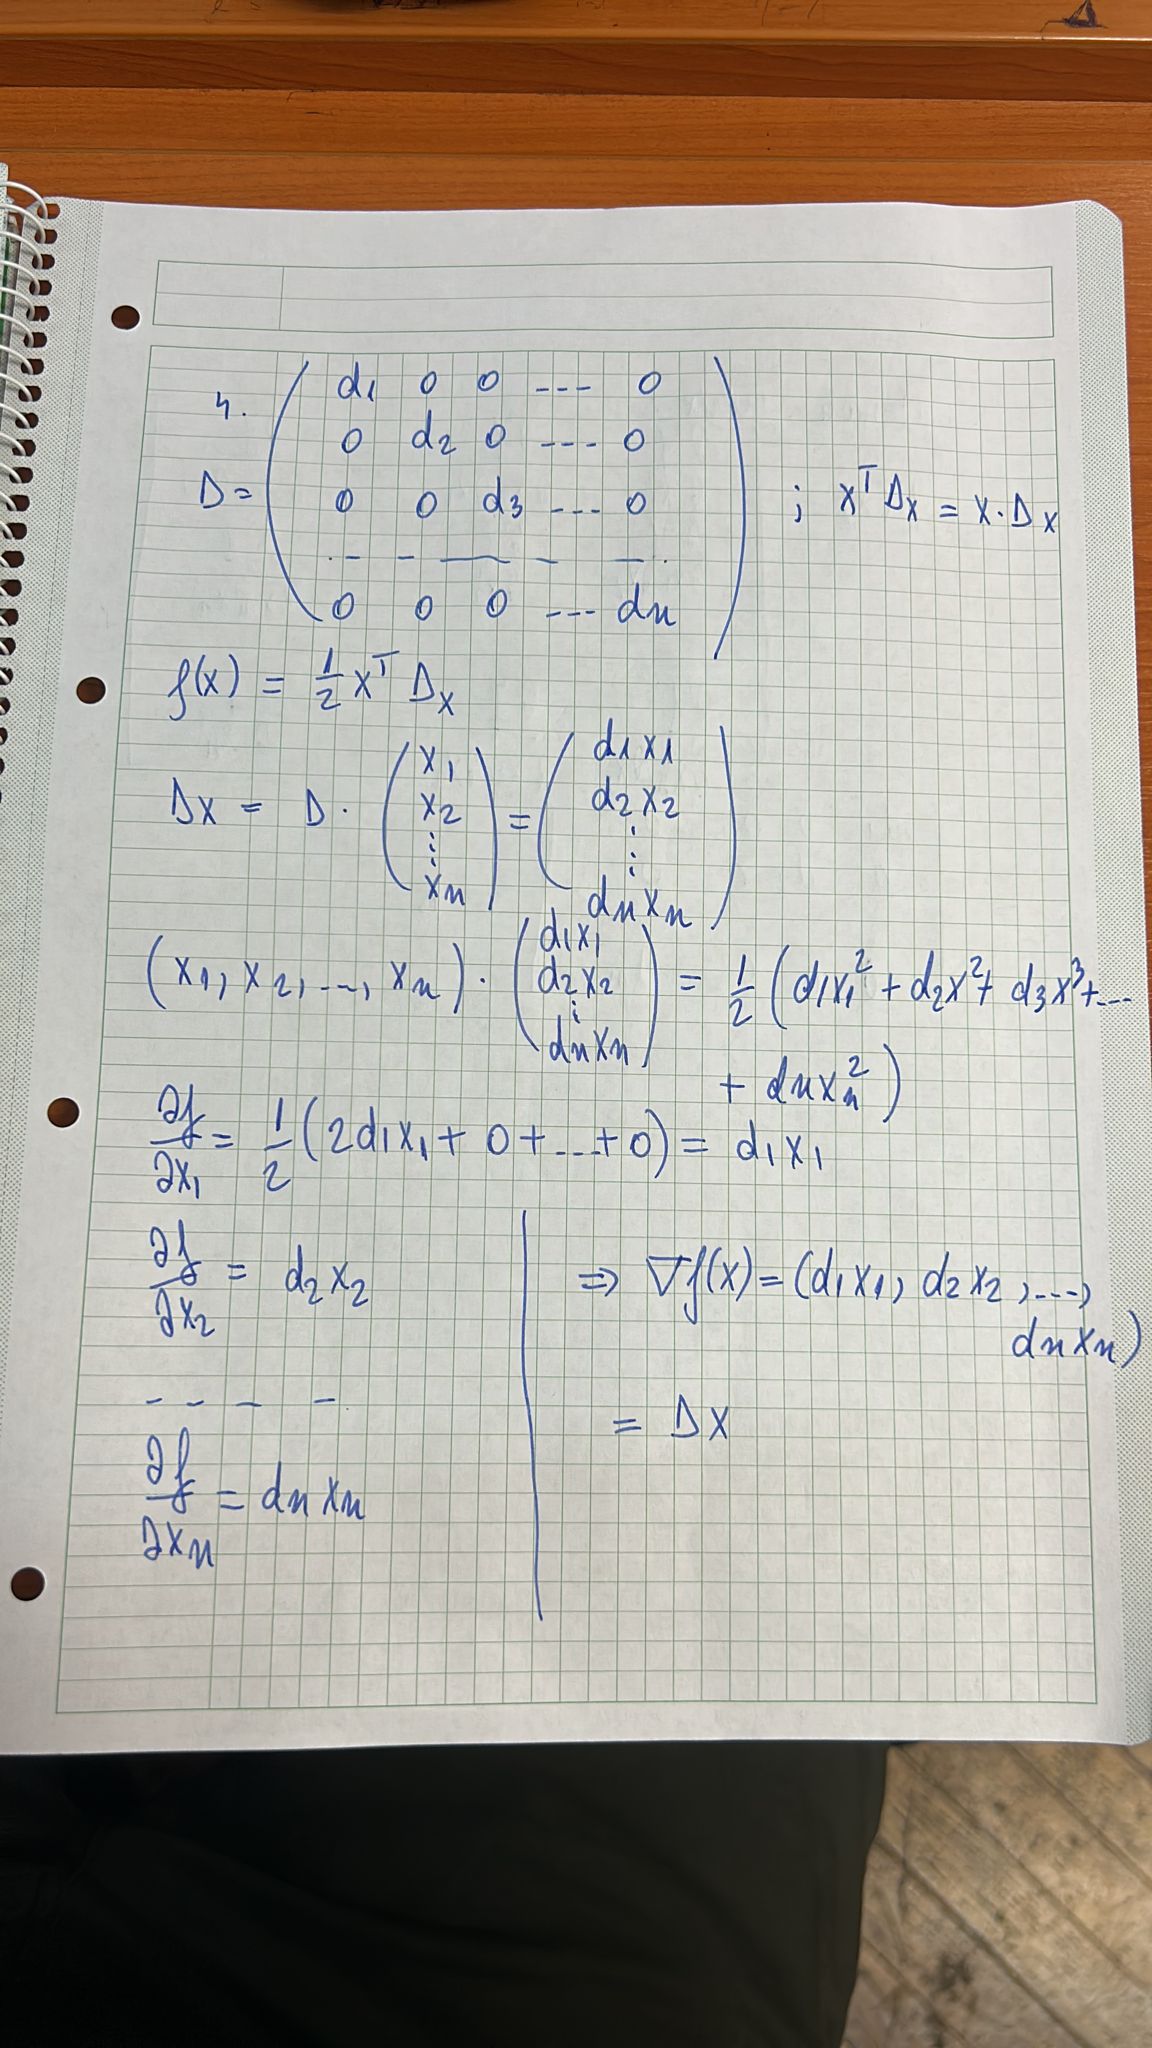 4.
D = ( d₁ 0 0 --- 0
0 d₂ 0 --- 0
0 0 d₃ --- 0
. - - — - — .
0 0 0 --- dn ) ; xᵀDx = x·Dx
f(x) = 1/2 xᵀ Dx
Dx = D · ( x₁ x₂ ⋮ xn ) = ( d₁x₁ d₂x₂ ⋮ dnxn )
(x₁, x₂, ..., xn) · ( d₁x₁ d₂x₂ ⋮ dnxn ) = 1/2 ( d₁x₁² + d₂x² + d₃x³ + ...
+ dnxn² )
∂f/∂x₁ = 1/2 (2d₁x₁ + 0 + ... + 0) = d₁x₁
∂f/∂x₂ = d₂x₂
- - - -
∂f/∂xn = dnxn
⇒ ∇f(x) = (d₁x₁, d₂x₂, ...,
dnxn)
= Dx